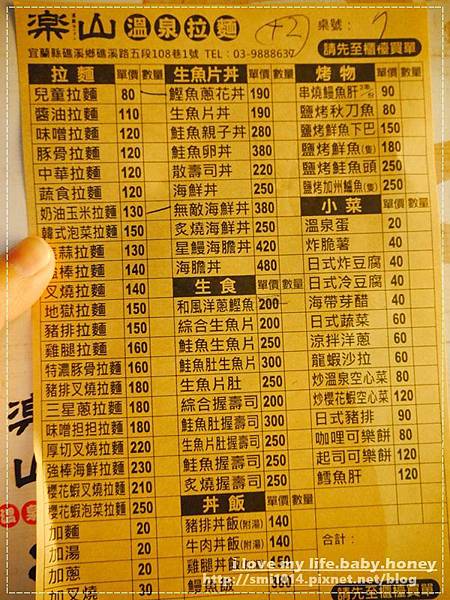 楽山 溫泉拉麵 +2 桌號： 7
宜蘭縣礁溪鄉礁溪路五段108巷1號 TEL：03-9888637 請先至櫃檯買單
拉麵 單價 數量
兒童拉麵 80
醬油拉麵 110
味噌拉麵 120
豚骨拉麵 120
中華拉麵 120
蔬食拉麵 120
奶油玉米拉麵 130
韓式泡菜拉麵 150
蒜拉麵 130
棒拉麵 130
叉燒拉麵 160
地獄拉麵 150
豬排拉麵 150
雞腿拉麵 160
特濃豚骨拉麵 160
豬排叉燒拉麵 180
三星蔥拉麵 180
味噌担担拉麵 180
厚切叉燒拉麵 220
強棒海鮮拉麵 230
櫻花蝦叉燒拉麵 210
櫻花蝦泡菜拉麵 250
加麵 20
加湯 20
加蔥 20
加叉燒 30
生魚片丼 單價 數量
鰹魚蔥花丼 190
生魚片丼 190
鮭魚親子丼 280
鮭魚卵丼 380
散壽司丼 220
海鮮丼 250
無敵海鮮丼 380
炙燒海鮮丼 250
星鰻海膽丼 420
海膽丼 480
生食 單價 數量
和風洋蔥鰹魚 200
綜合生魚片 200
鮭魚生魚片 250
鮭魚肚生魚片 300
生魚片肚 250
綜合握壽司 200
鮭魚肚握壽司 300
生魚片肚握壽司 250
鮭魚握壽司 250
炙燒握壽司 250
丼飯 單價 數量
豬排丼飯(附湯) 140
牛肉丼飯(附湯) 140
雞腿丼飯 150
鰻魚飯
烤物 單價 數量
串燒鰻魚肝 90
鹽烤秋刀魚 80
鹽烤鮮魚下巴 150
鹽烤鮮魚(隻) 180
鹽烤鮭魚頭 250
鹽烤加州鱸魚(隻) 250
小菜 單價 數量
溫泉蛋 20
炸脆薯 40
日式炸豆腐 40
日式冷豆腐 40
海帶芽醋 40
日式蔬菜 60
涼拌洋蔥 60
龍蝦沙拉 60
炒溫泉空心菜 80
炒櫻花蝦空心菜 120
日式豬排 90
咖哩可樂餅 80
起司可樂餅 120
鱈魚肝 120
合計：
請先至櫃檯買單
i love my life.baby.honey
http://smile14.pixnet.net/blog